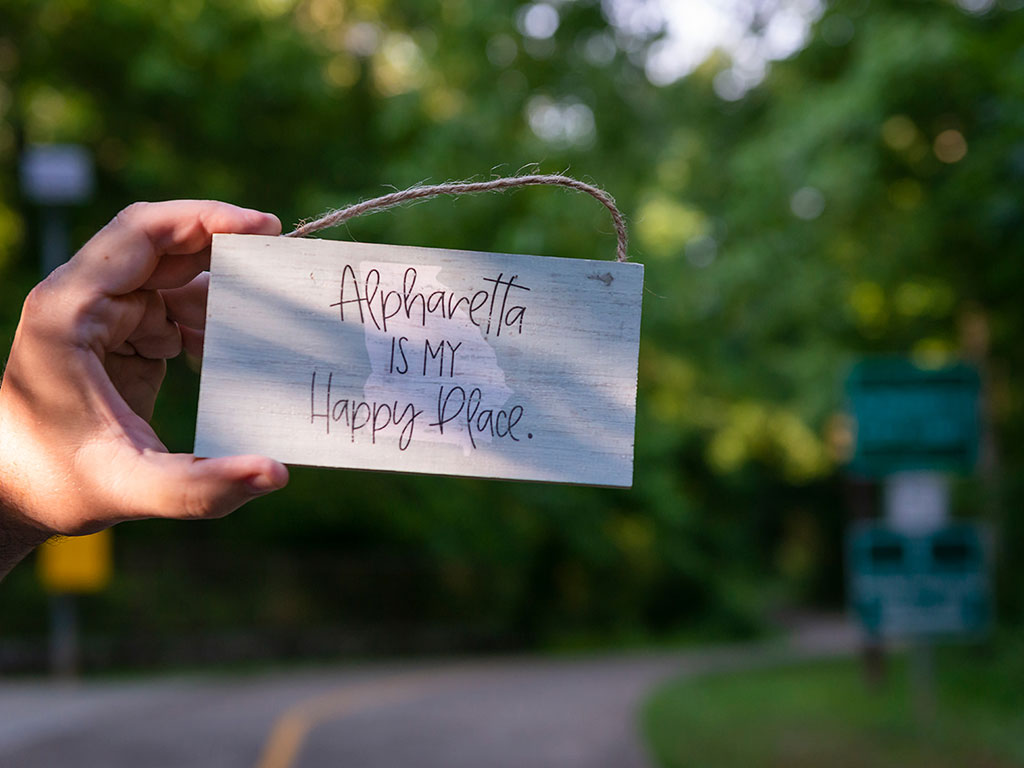 Alpharetta
IS MY
Happy Place.